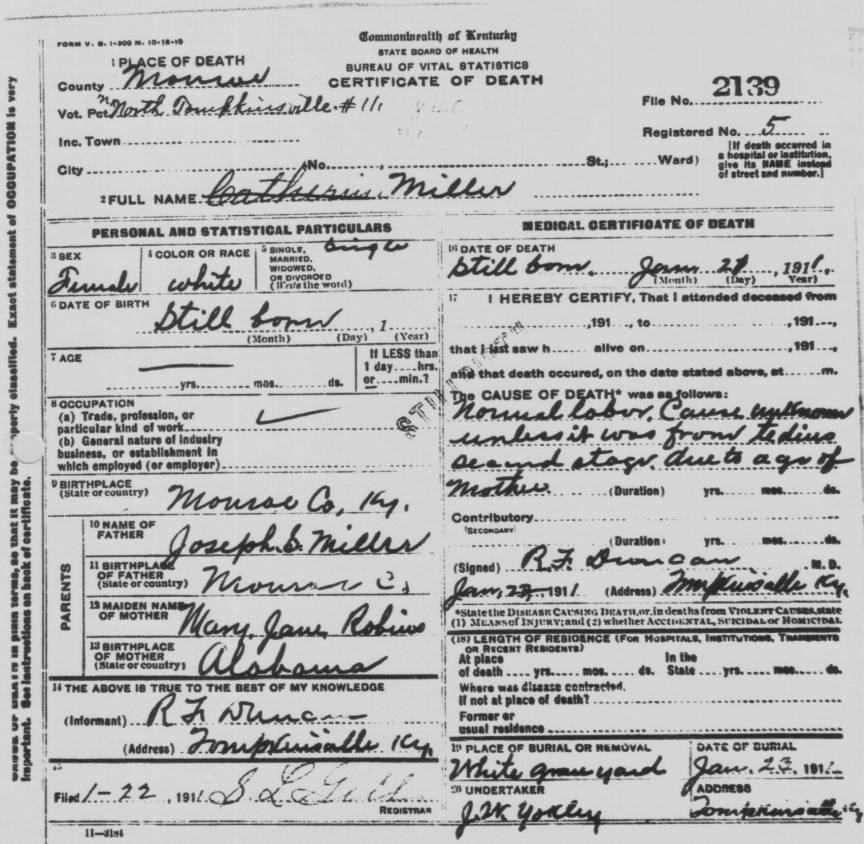 Commonwealth of Kentucky
FORM V. S. 1-300 M. 10-15-10
STATE BOARD OF HEALTH
BUREAU OF VITAL STATISTICS
CERTIFICATE OF DEATH
1 PLACE OF DEATH
County Monroe
Vot. Pct North Tompkinsville #11
Inc. Town
City No. St.; Ward)
File No. 2139
Registered No. 5
[If death occurred in
a hospital or institution,
give its NAME instead
of street and number.]
2 FULL NAME Miller
PERSONAL AND STATISTICAL PARTICULARS
3 SEX
Female
4 COLOR OR RACE
white
5 SINGLE,
MARRIED,
WIDOWED,
OR DIVORCED
(Write the word)
Single
6 DATE OF BIRTH
Still born, 1
(Month) (Day) (Year)
7 AGE
yrs. mos. ds.
If LESS than
1 day hrs.
or min.?
8 OCCUPATION
(a) Trade, profession, or
particular kind of work
(b) General nature of industry
business, or establishment in
which employed (or employer)
9 BIRTHPLACE
(State or country)
Monroe Co, Ky.
PARENTS
10 NAME OF
FATHER
Joseph S. Miller
11 BIRTHPLACE
OF FATHER
(State or country)
Monroe Co
12 MAIDEN NAME
OF MOTHER
Mary Jane
13 BIRTHPLACE
OF MOTHER
(State or country)
Alabama
14 THE ABOVE IS TRUE TO THE BEST OF MY KNOWLEDGE
(Informant) R F Duncan
(Address) Tompkinsville Ky.
15
Filed 1-22, 1911
REGISTRAR
11-3184
MEDICAL CERTIFICATE OF DEATH
16 DATE OF DEATH
Still born. Jan 21, 1911.
(Month) (Day) Year)
17 I HEREBY CERTIFY, That I attended deceased from
, 191 , to , 191
that I last saw h alive on , 191
and that death occured, on the date stated above, at m.
The CAUSE OF DEATH* was as follows:
Normal labor. Cause unknown
unless it was from tedius
second stage. due to age of
Mother (Duration) yrs. mos. ds.
Contributory
(SECONDARY)
(Duration) yrs. mos. ds.
(Signed) R.F. Duncan M. D.
Jan, 22 1911 (Address) Tompkinsville Ky.
*State the DISEASE CAUSING DEATH, or, in deaths from VIOLENT CAUSES, state
(1) MEANS of INJURY; and (2) whether ACCIDENTAL, SUICIDAL or HOMICIDAL
(18) LENGTH OF RESIDENCE (FOR HOSPITALS, INSTITUTIONS, TRANSIENTS
OR RECENT RESIDENTS)
At place In the
of death yrs. mos. ds. State yrs. mos. ds.
Where was disease contracted,
If not at place of death?
Former or
usual residence
19 PLACE OF BURIAL OR REMOVAL
White grave yard
DATE OF BURIAL
Jan. 23. 1911
20 UNDERTAKER
J.W. Yokley
ADDRESS
Tompkinsville Ky
STILL BIRTH